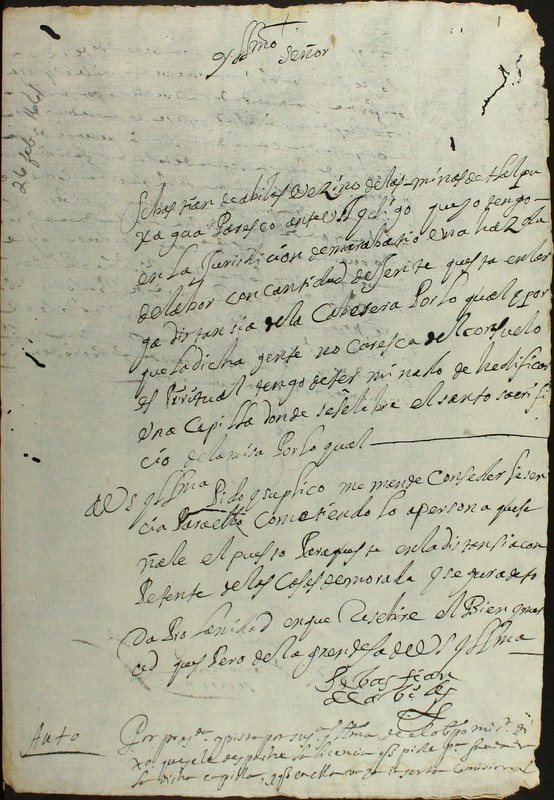 Yllmo Señor
26 feb. 1661
Sebastian de abiles vezino de las minas de tlalpu
xagua Paresco ante V S y digo que yo tengo
en la Jurisdicion de marabatio una hazda
de labor con cantidad de Jente questa en lar
ga distansia de la Cabesera Por lo qual y por
que la dicha gente no Caresca del Consuelo
espiritual tengo determinado de hedificar
una Capilla donde seselebre el santo sacrifi
cio de la misa Por lo qual
A V S Yllma Pido y suplico me mende Conseder lisen
cia Para ello Cometiendo lo a persona que se
ñale el puesto Para questa en la distansia con
Petente de las Casas de morada y segura de to
da Profanidad en que Resebire el Bien y mer
ced que espero de la grandesa de V S Yllma
Sebastian
de abiles
Auto
Por presda y vista por su sa Yllma del obpo mi sr di
xo que se le despache la licencia q pide para
la dicha capilla,